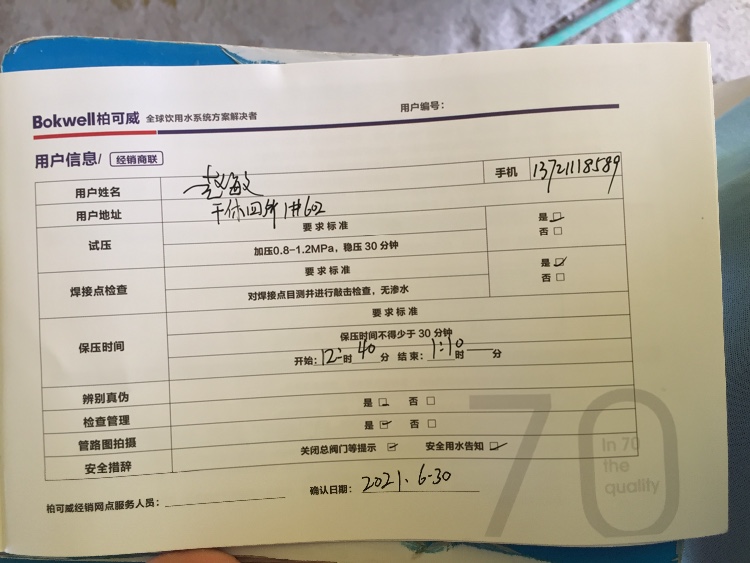 Bokwell柏可威 全球饮用水系统方案解决者 用户编号:
用户信息/ 经销商联
用户姓名 赵敏 手机 13721118589
用户地址 干休四所1#602
试压 要求标准 是
加压0.8-1.2MPa，稳压30分钟 否
焊接点检查 要求标准 是
对焊接点目测并进行敲击检查，无渗水 否
保压时间 要求标准
保压时间不得少于30分钟
开始: 12: 时 40 分 结束: 1:10 时 分
辨别真伪
检查管理 是 否
管路图拍摄 是 否
安全措辞 关闭总阀门等提示 安全用水告知
70
In 70
the
quality
柏可威经销网点服务人员: 确认日期: 2021.6-30